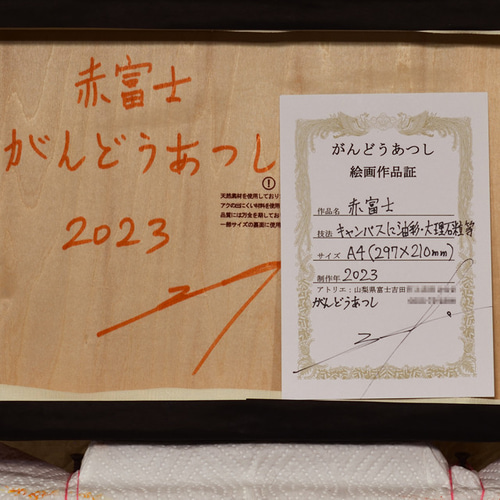 赤富士
がんどうあつし
2023
天然素材を使用しており
アクの出にくい材料を使用
品質には万全を期してお
一部サイズの裏面に使用
がんどうあつし
絵画作品証
作品名 赤富士
技法 キャンバスに油彩・大理石粒等
サイズ A4(297×210mm)
制作年 2023
アトリエ:山梨県富士吉田
がんどうあつし